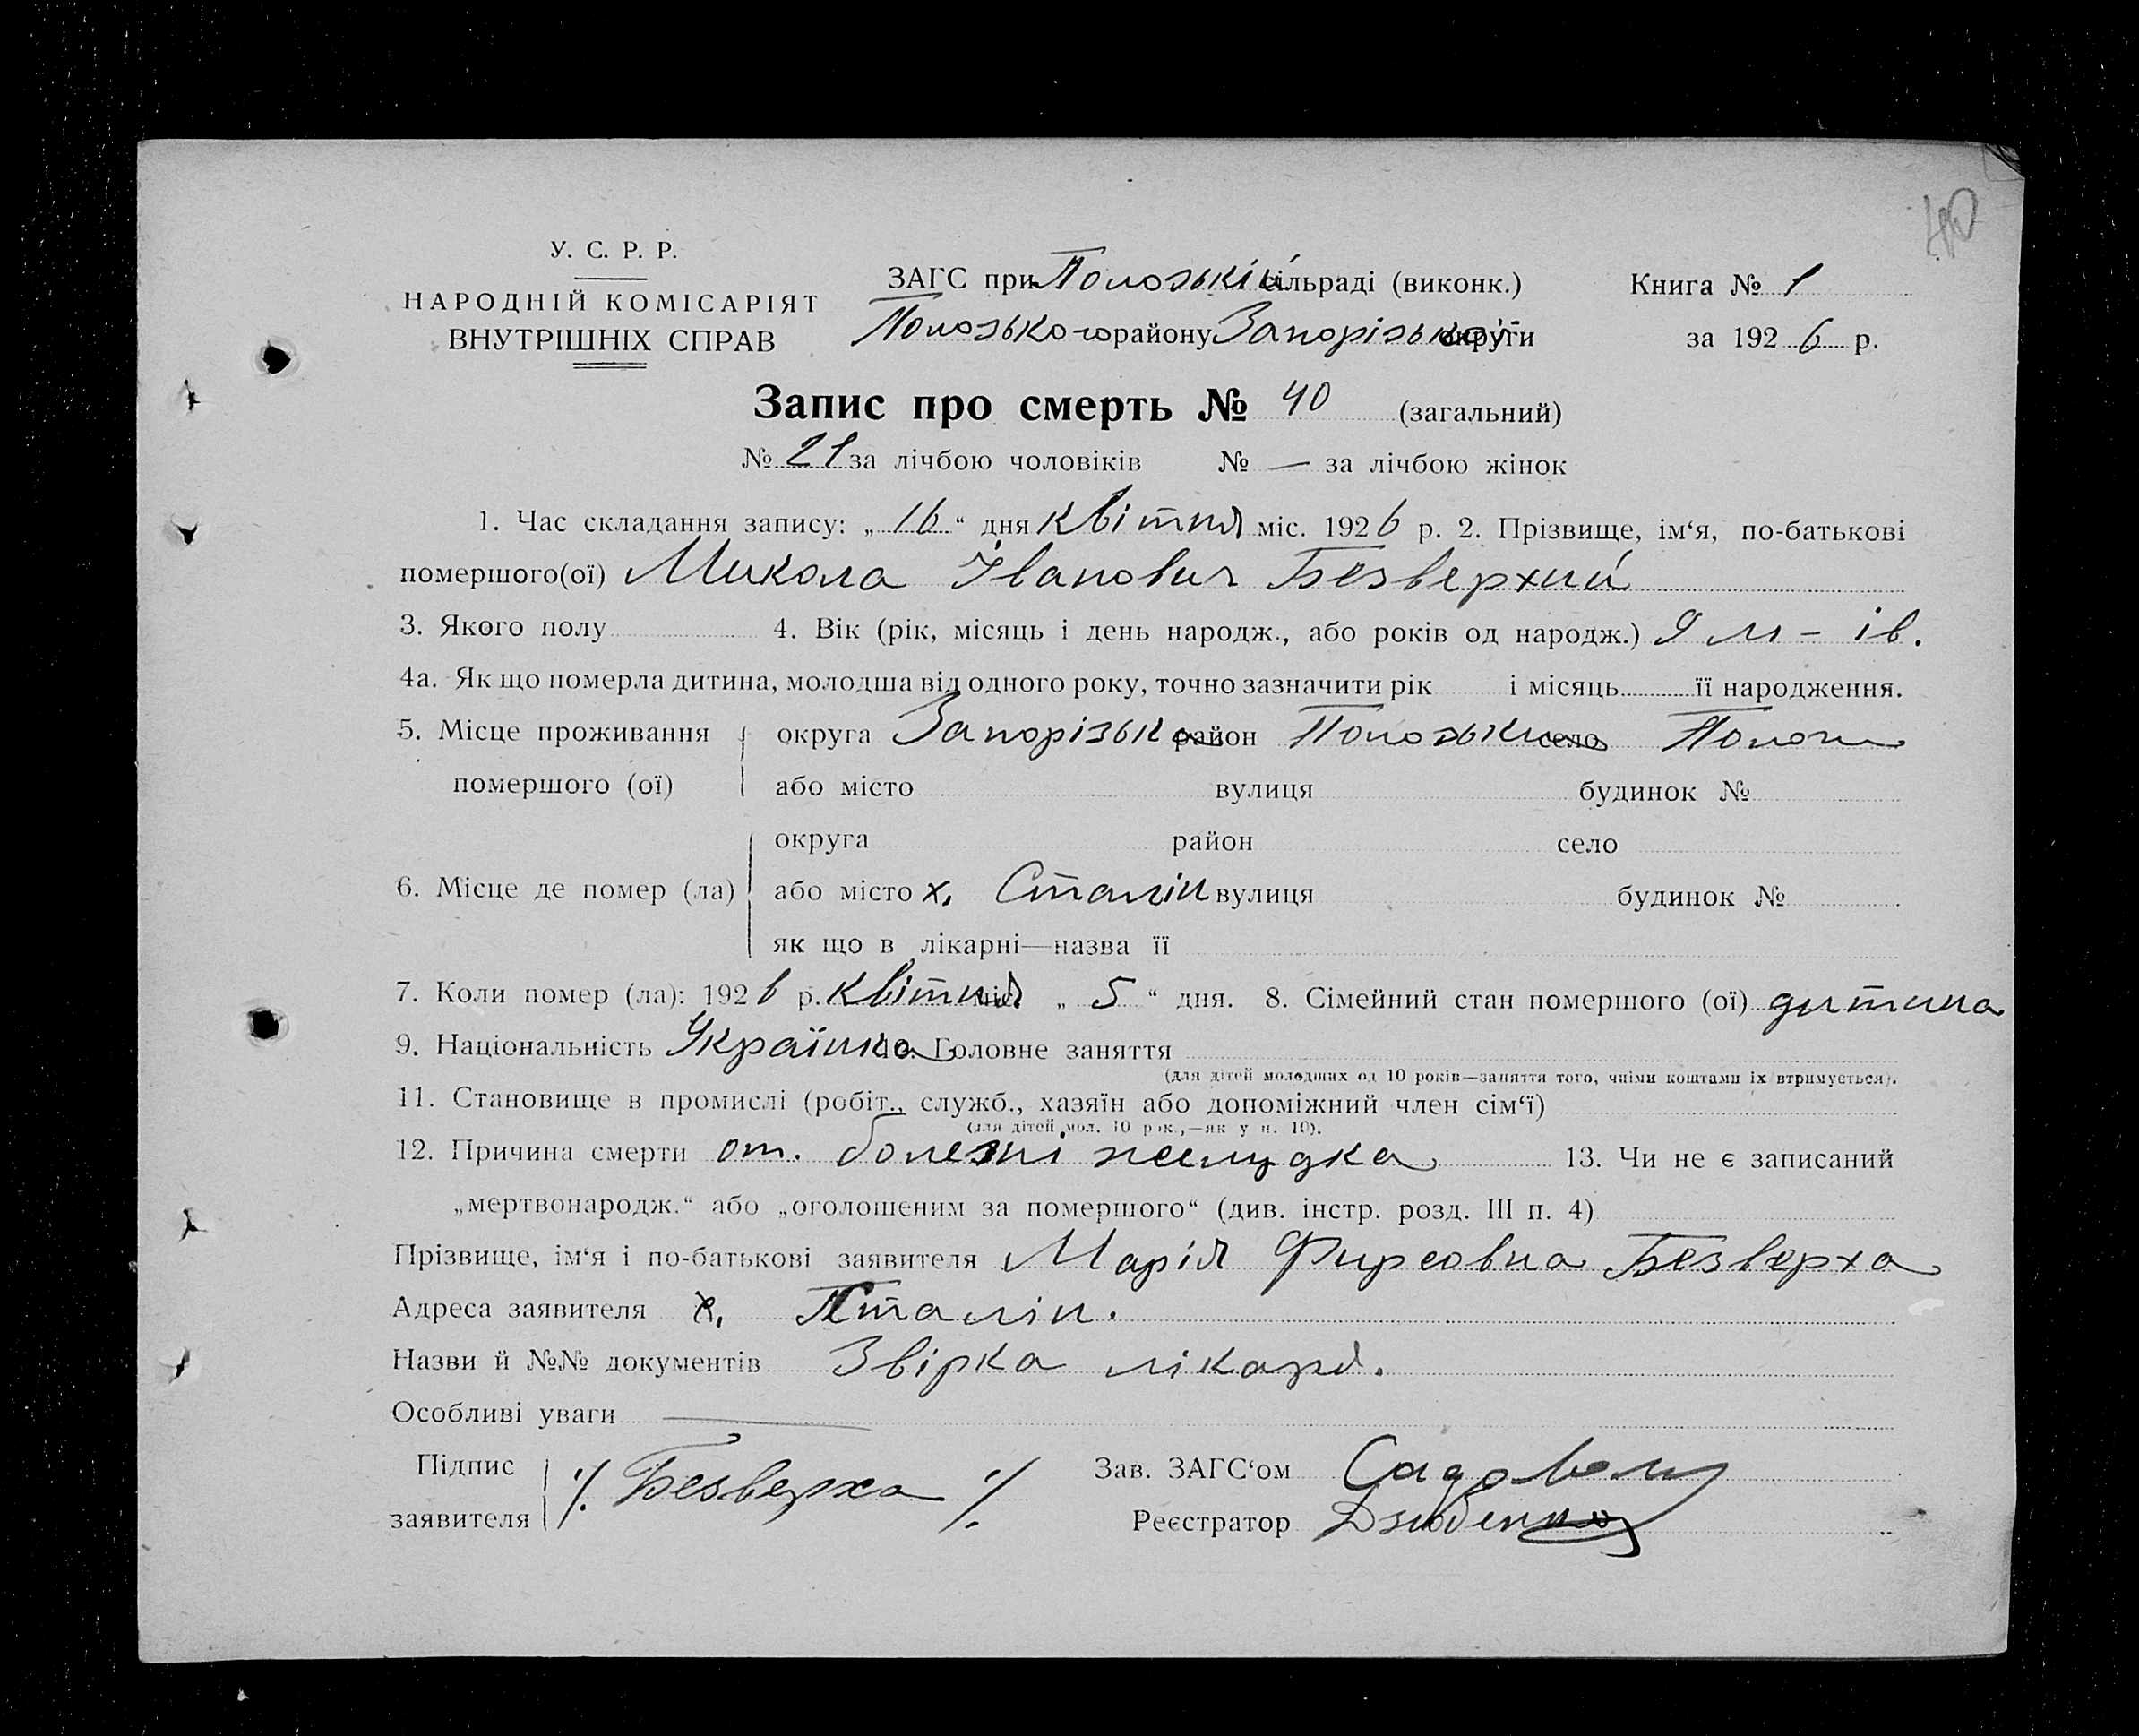 40
У. С. Р. Р.
НАРОДНІЙ КОМІСАРІЯТ
ВНУТРІШНІХ СПРАВ
ЗАГС при Полозькій сільраді (виконк.)
Полозького району Запорізької округи
Книга № 1
за 1926 р.
Запис про смерть № 40 (загальний)
№ 21 за лічбою чоловіків № — за лічбою жінок
1. Час складання запису: „16“ дня квітня міс. 1926 р. 2. Прізвище, ім‘я, по-батькові
помершого(ої) Микола Іванович Безверхий
3. Якого полу 4. Вік (рік, місяць і день народж., або років од народж.) 9 м – ів.
4а. Як що померла дитина, молодша від одного року, точно зазначити рік і місяць її народження.
5. Місце проживання помершого (ої) округа Запорізька район Полозький село Пологи
або місто вулиця будинок №
6. Місце де помер (ла) округа район село
або місто х. Сталін вулиця будинок №
як що в лікарні—назва її
7. Коли помер (ла): 1926 р. квітня міс. „5“ дня. 8. Сімейний стан помершого (ої) дитина
9. Національність Українка 10. Головне заняття
(для дітей молодших од 10 років—заняття того, чиїми коштами їх втримується).
11. Становище в промислі (робіт., служб., хазяїн або допоміжний член сім‘ї)
(для дітей мол. 10 рок.,—як у п. 10).
12. Причина смерти от. болезні желудка 13. Чи не є записаний
„мертвонародж.“ або „оголошеним за помершого“ (див. інстр. розд. III п. 4)
Прізвище, ім‘я і по-батькові заявителя Марія Фирсовна Безверха
Адреса заявителя х. Сталін.
Назви й №№ документів Звірка лікаря.
Особливі уваги
Підпис заявителя ./. Безверха ./.
Зав. ЗАГС‘ом
Реєстратор Дзюбенко